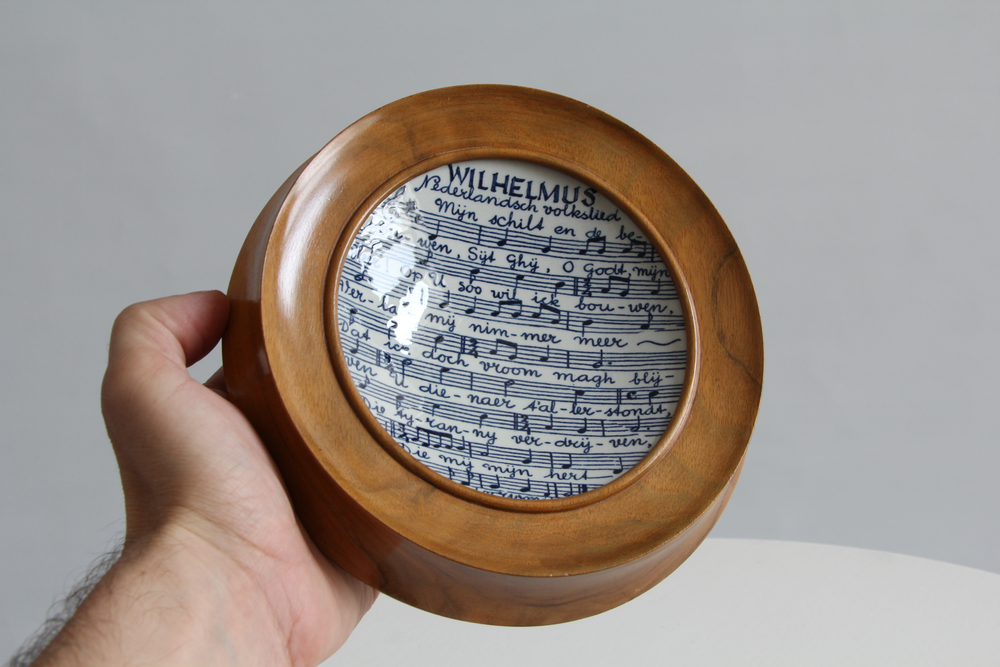 WILHELMUS
Nederlandsch volkslied
Mijn schilt en de be-
wen, Sijt Ghij, O Godt, mijn
Op U soo wil ick bou-wen,
Ver-la mij nim-mer meer
Dat ick doch vroom magh blij-
ven U die-naer t'al-ler-stondt,
Die ty-ran-ny ver-drij-ven,
Die mij mijn hert